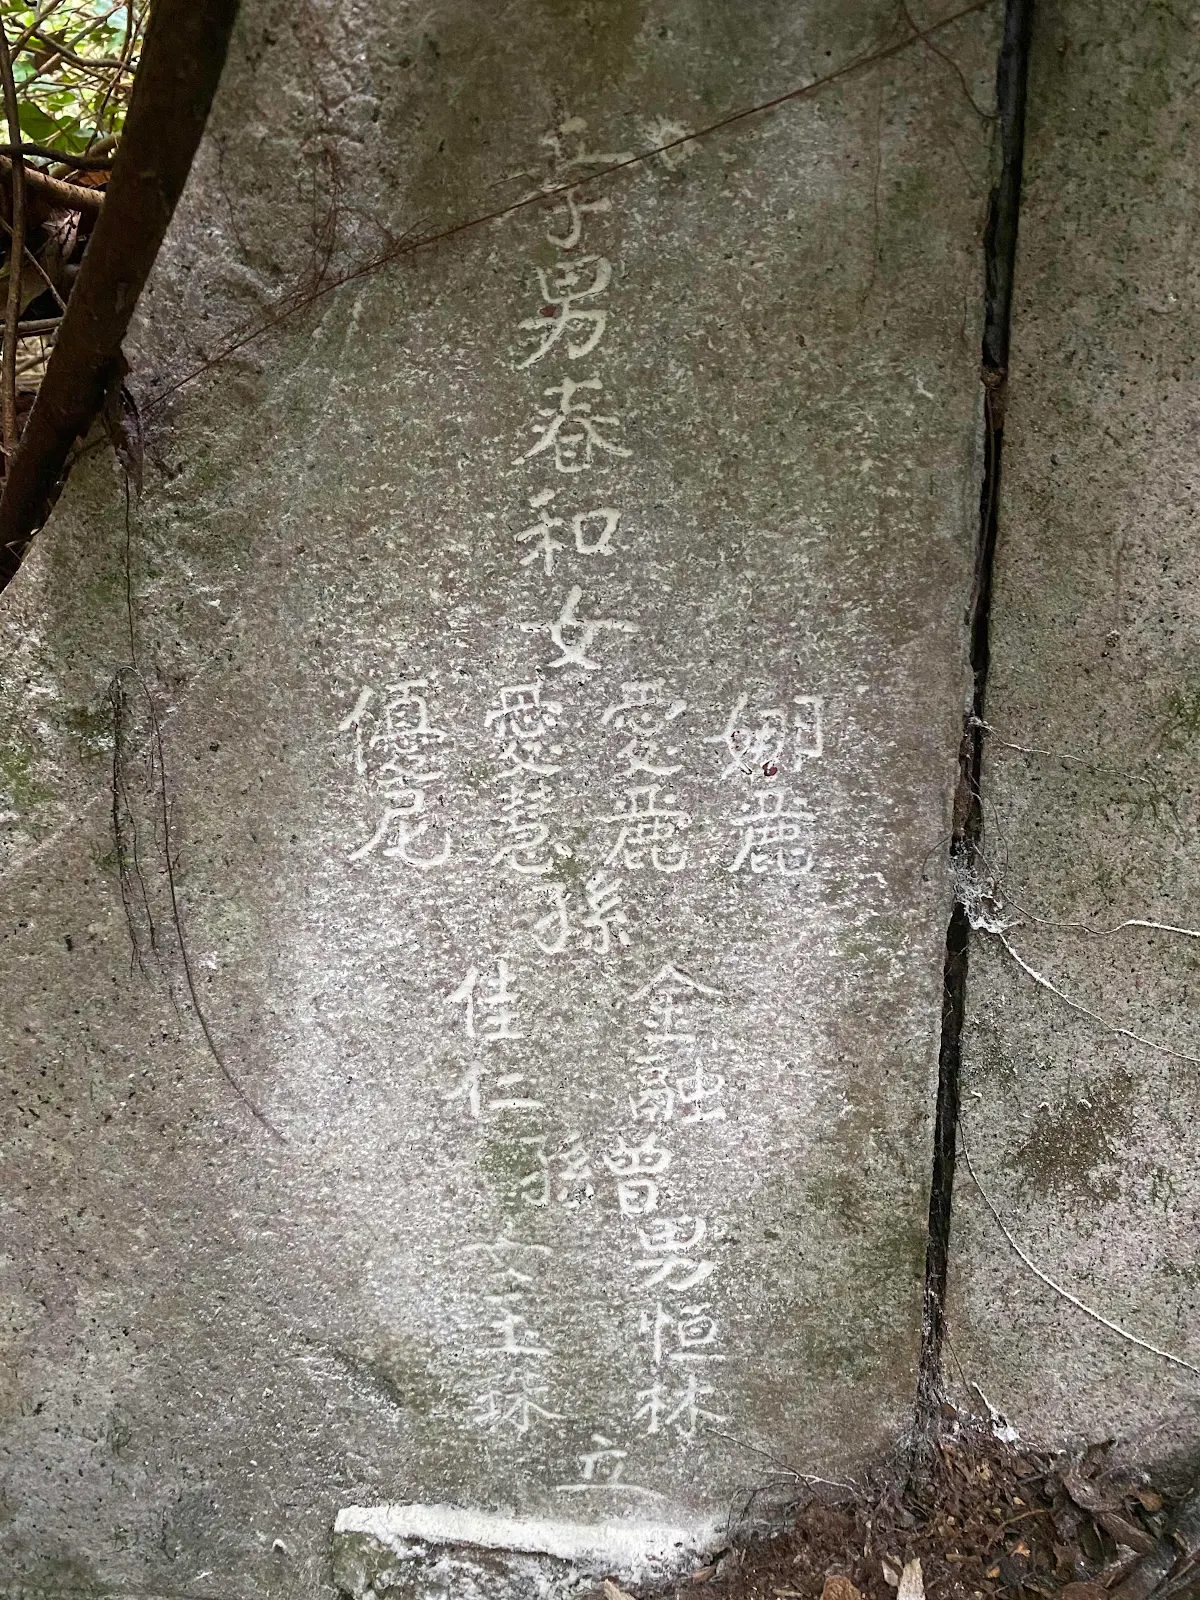 孝男春和女
娜麗
愛麗
愛慧
優尼
孫
金融
佳仁
曾孫
男恒林
女玉珠
立